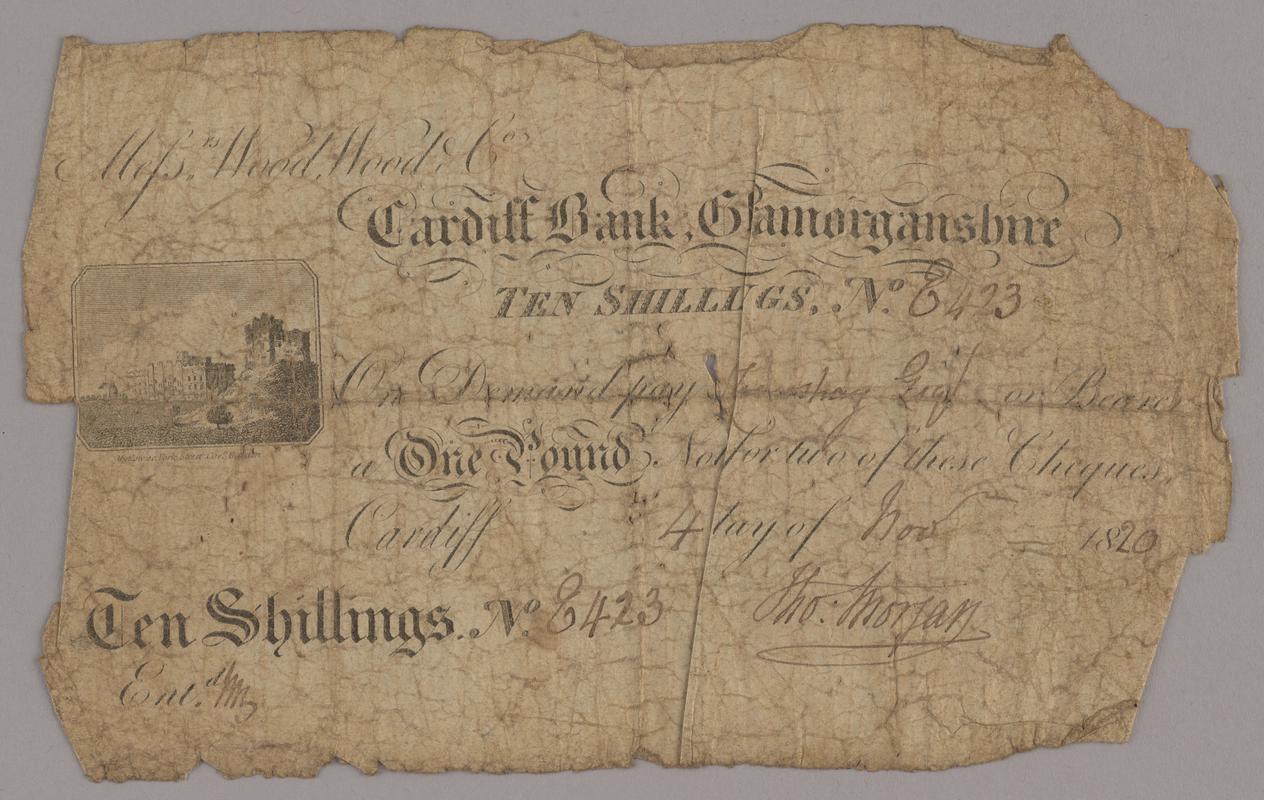 Meſsrs. Wood, Wood & Co.
Cardiff Bank, Glamorganshire
TEN SHILLINGS, No. E423
On Demand pay or Bearer
a One Pound Note for two of these Cheques,
Cardiff 4 day of Nov 1820
Ten Shillings. No. E423
Tho. Morgan
Entd.